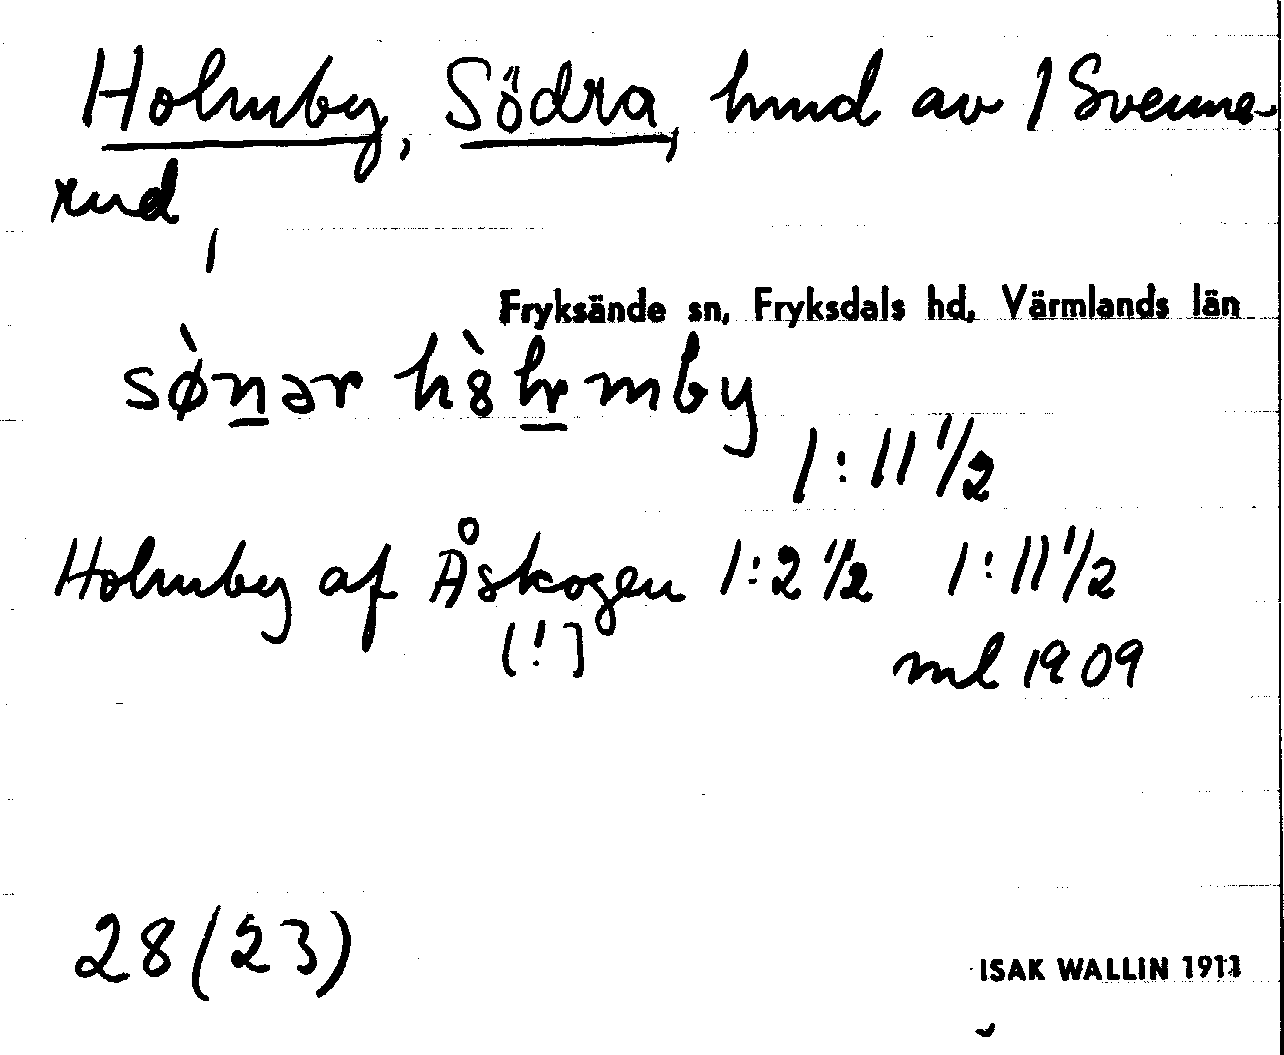 Holmby, Södra, hmd av 1 Svenne-
rud,
Fryksände sn, Fryksdals hd, Värmlands län
sø̀n̲ər h8̀l̲r̲mby
1:11 1/2
Holmby af Åskogen 1:2 1/2 1:11 1/2
[!]
ml 1909
28 (23)
ISAK WALLIN 1911